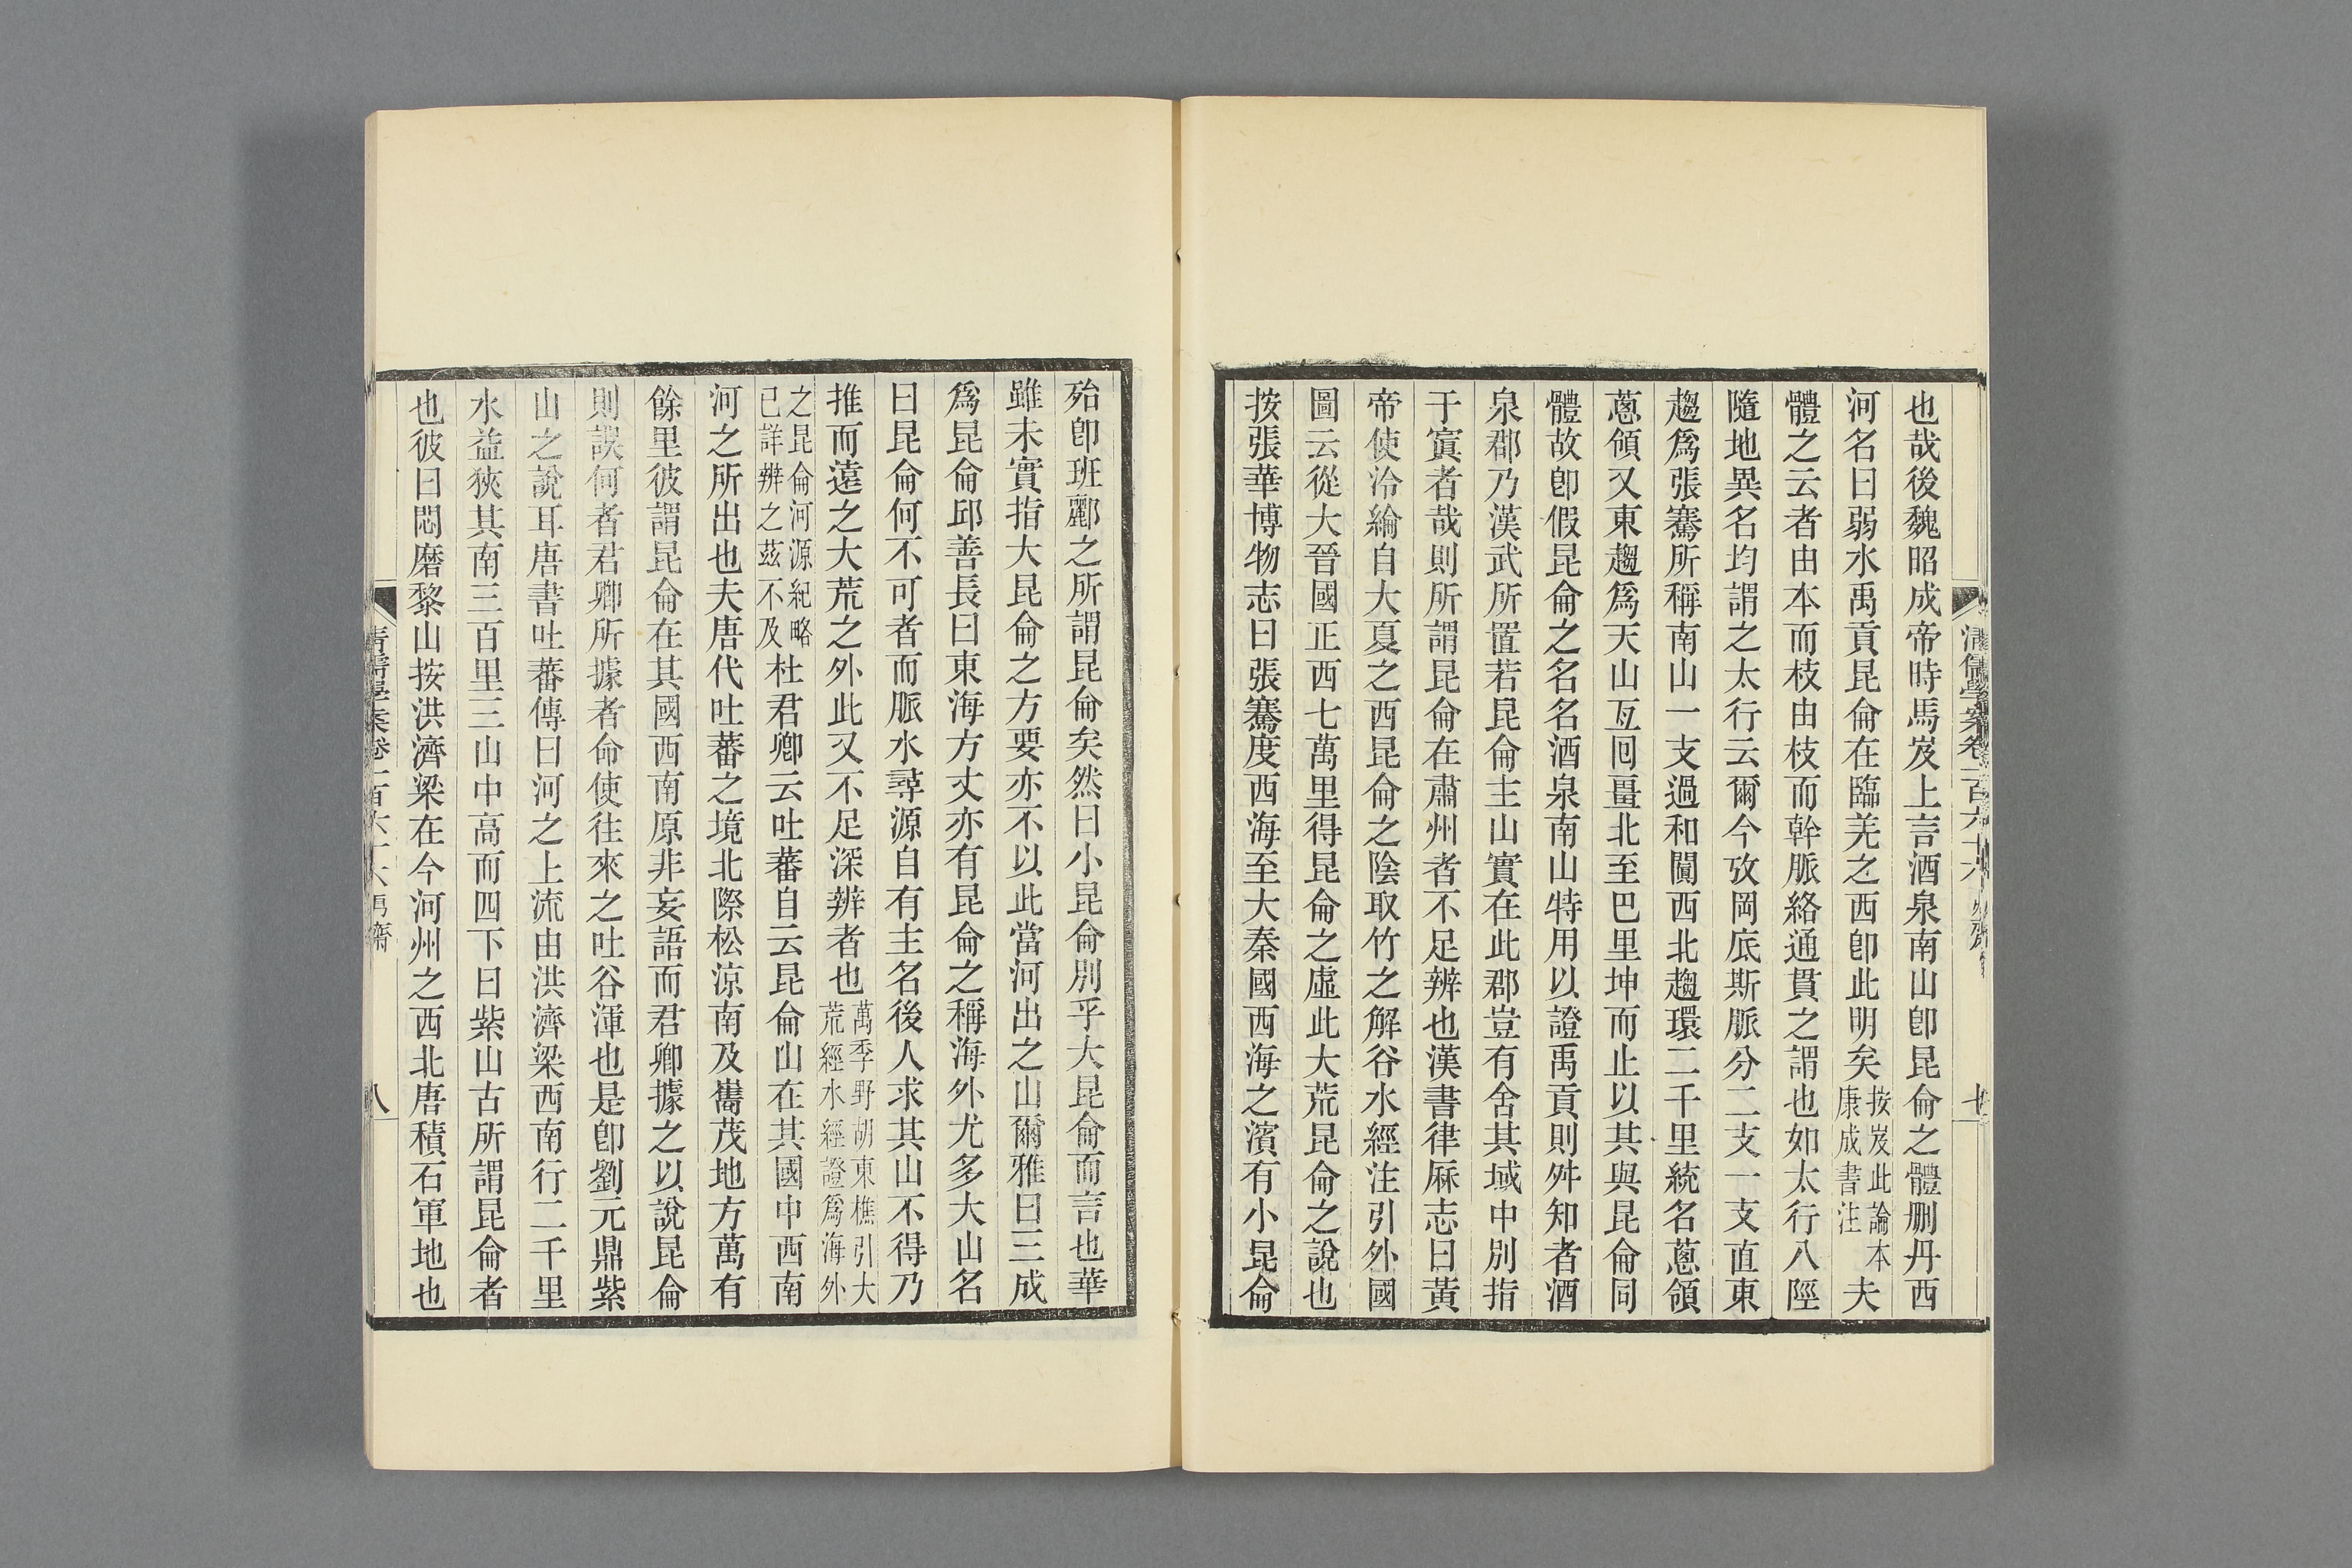 清儒學案卷一百六十六
也哉後魏昭成帝時馬岌上言酒泉南山卽昆侖之體刪丹西
河名曰弱水禹貢昆侖在臨羌之西卽此明矣按岌此論本康成書注夫
體之云者由本而枝由枝而幹脈絡通貫之謂也如太行八陘
隨地異名均謂之太行云爾今攷岡底斯脈分二支一支直東
趨爲張騫所稱南山一支過和闐西北趨環二千里統名蔥領
蔥領又東趨爲天山亙囘畺北至巴里坤而止以其與昆侖同
體故卽假昆侖之名名酒泉南山特用以證禹貢則舛知者酒
泉郡乃漢武所置若昆侖主山實在此郡豈有舍其域中別指
于窴者哉則所謂昆侖在肅州者不足辨也漢書律厤志曰黃
帝使泠綸自大夏之西昆侖之陰取竹之解谷水經注引外國
圖云從大晉國正西七萬里得昆侖之虛此大荒昆侖之說也
按張華博物志曰張騫度西海至大秦國西海之濱有小昆侖
殆卽班酈之所謂昆侖矣然曰小昆侖別乎大昆侖而言也華
雖未實指大昆侖之方要亦不以此當河出之山爾雅曰三成
爲昆侖邱善長曰東海方丈亦有昆侖之稱海外尤多大山名
曰昆侖何不可者而脈水尋源自有主名後人求其山不得乃
推而遠之大荒之外此又不足深辨者也萬季野胡東樵引大荒經水經證爲海外
之昆侖河源紀略已詳辨之茲不及杜君卿云吐蕃自云昆侖山在其國中西南
河之所出也夫唐代吐蕃之境北際松涼南及巂茂地方萬有
餘里彼謂昆侖在其國西南原非妄語而君卿據之以說昆侖
則誤何者君卿所據者命使往來之吐谷渾也是卽劉元鼎紫
山之說耳唐書吐蕃傳曰河之上流由洪濟梁西南行二千里
水益狹其南三百里三山中高而四下曰紫山古所謂昆侖者
也彼曰悶磨黎山按洪濟梁在今河州之西北唐積石軍地也
八